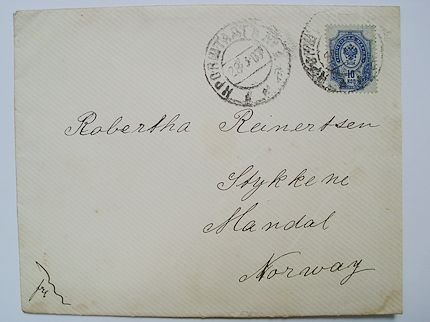 КРОНШТАДТ
10
Robertha Reinertsen
Stykkene
Mandal
Norway